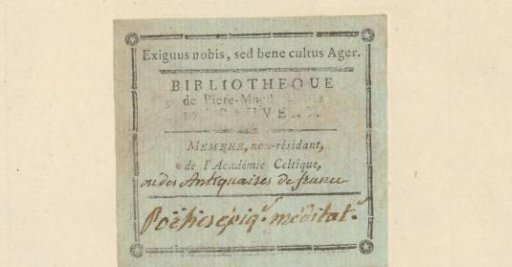 Exiguus nobis, sed bene cultus Ager.
BIBLIOTHEQUE
de Piere-
MEMBRE, non-résidant,
de l'Académie Celtique,
ou des Antiquaires de france
Poëtices épiq. méditat.